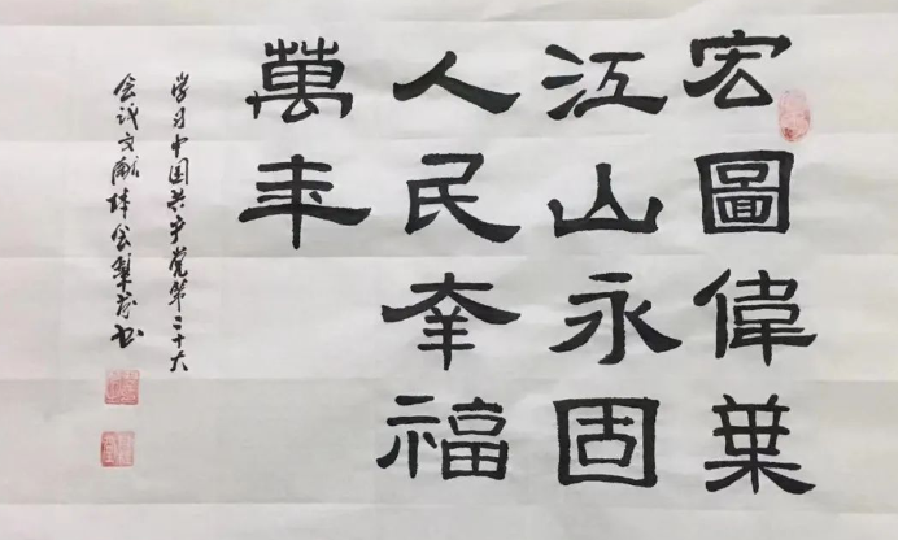 宏圖偉業
江山永固
人民幸福
萬年
学习中国共产党第二十大
会议文献体会